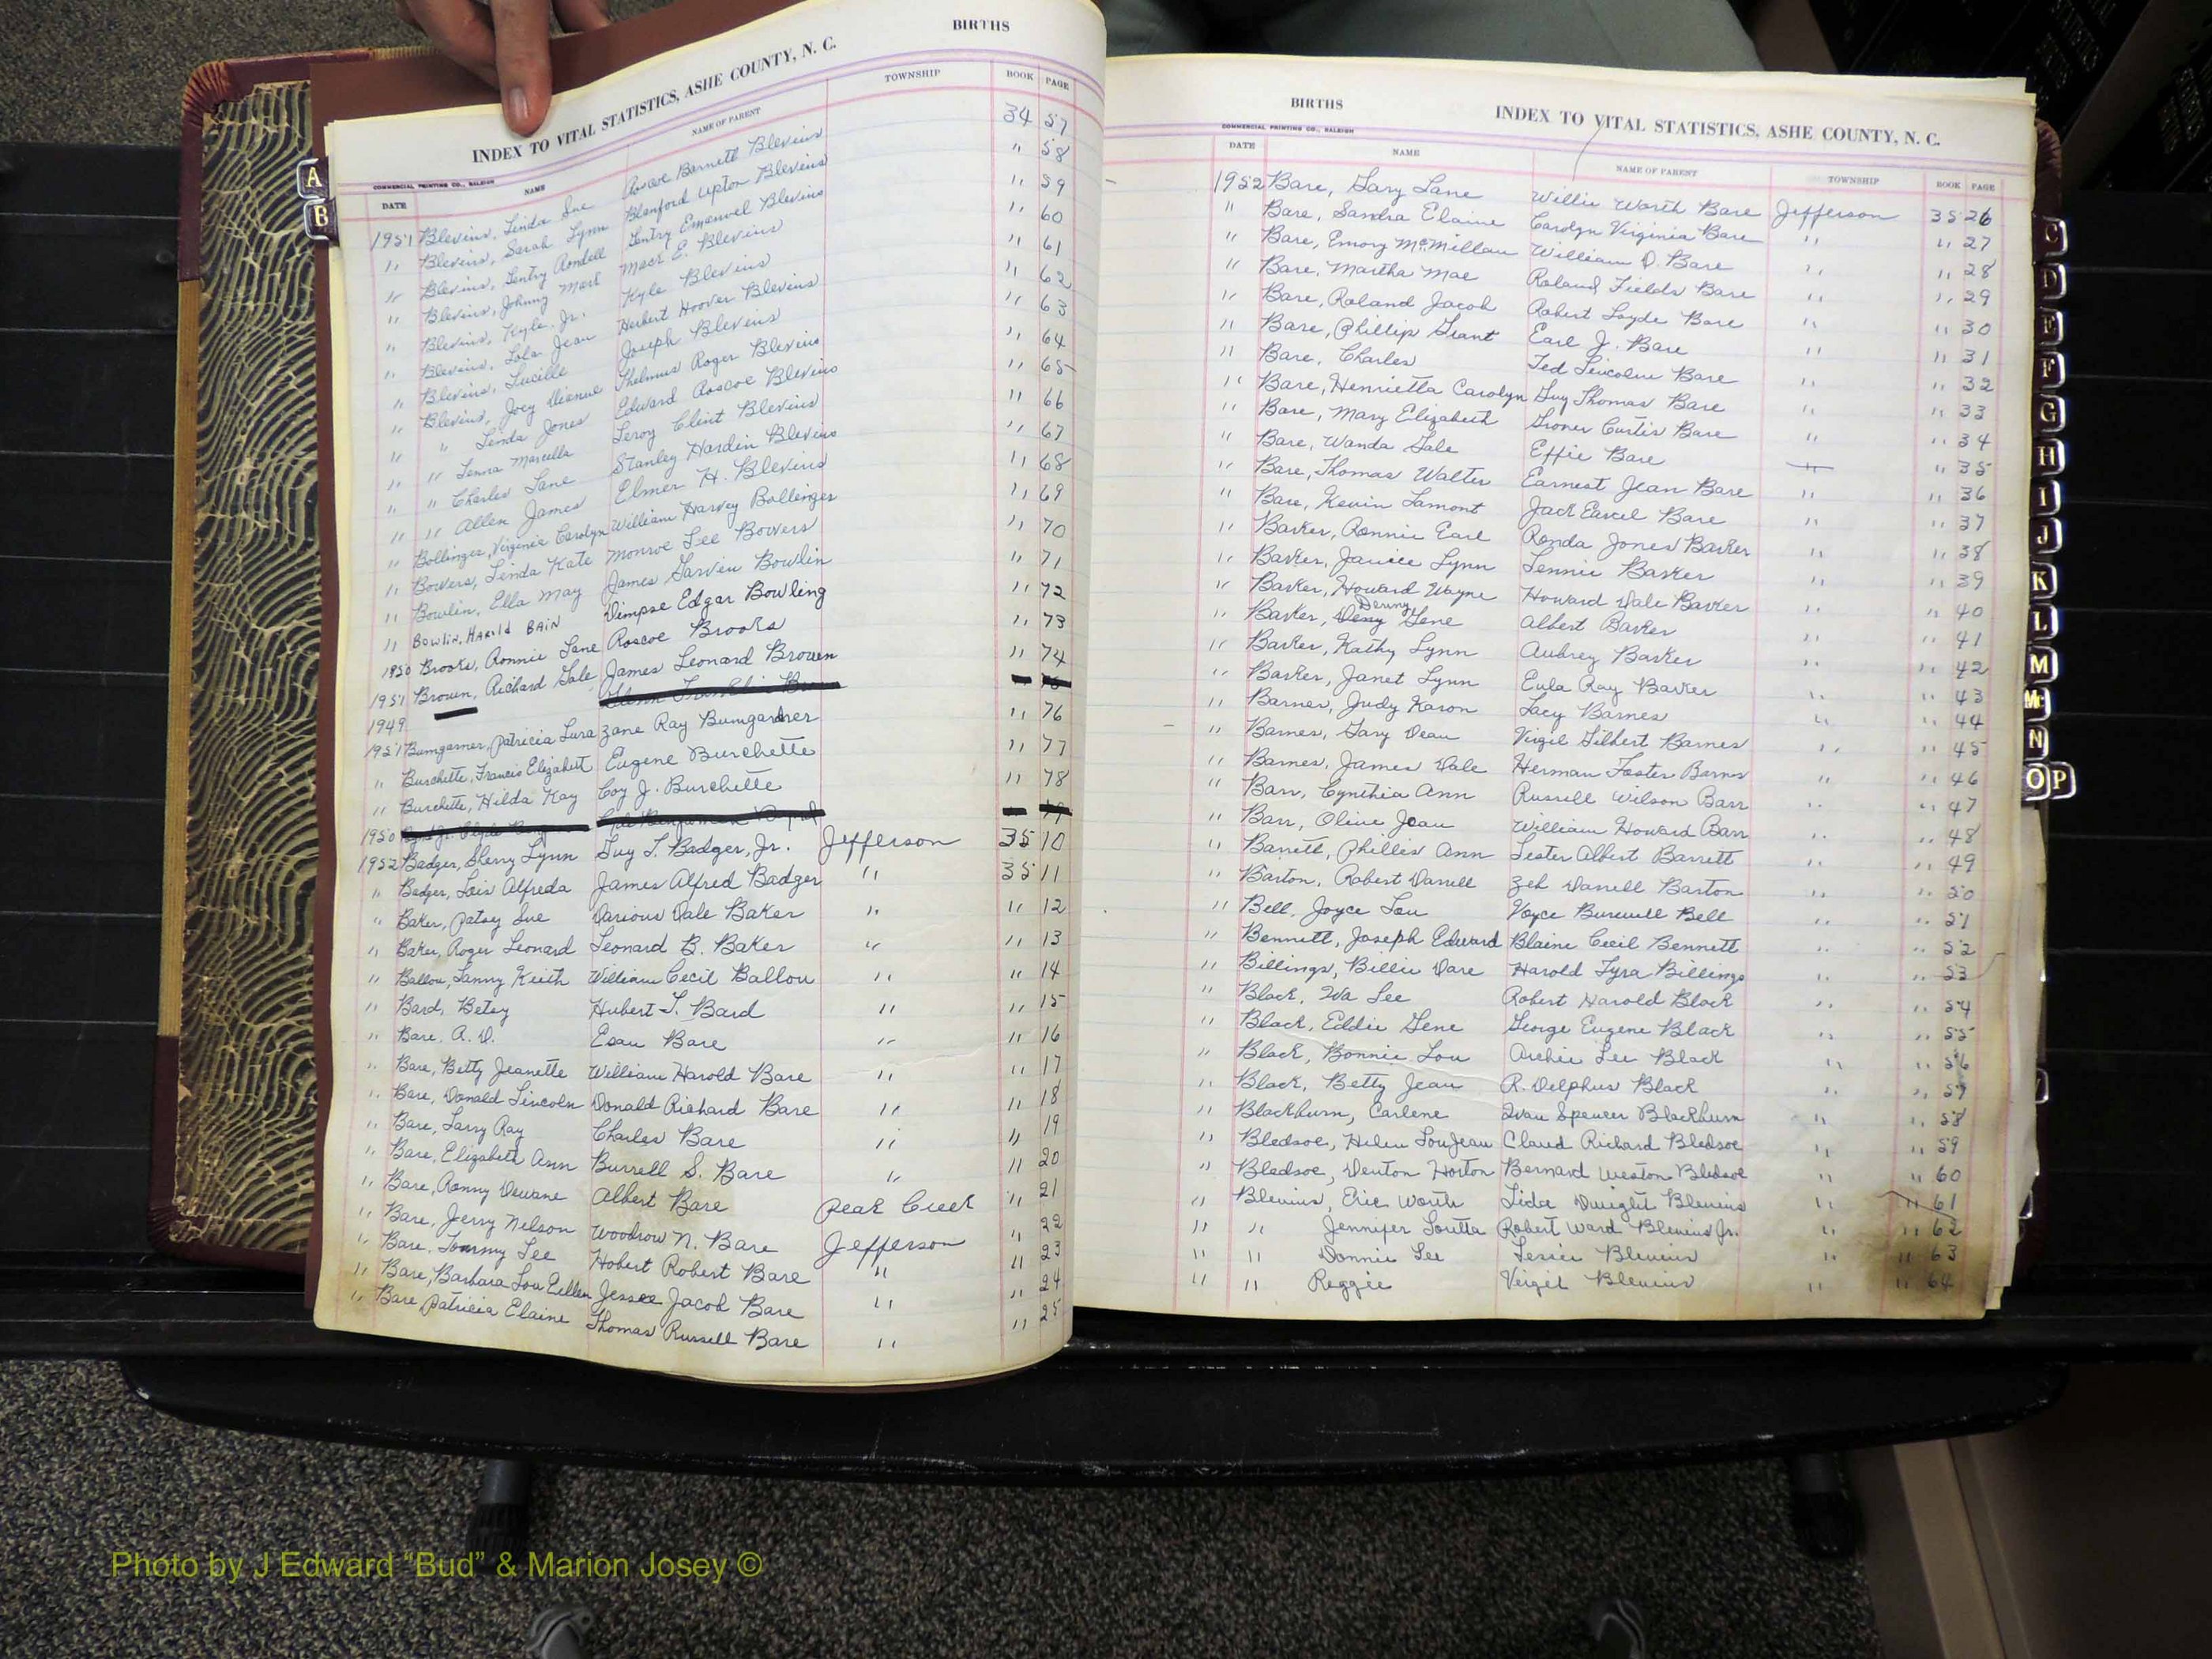 BIRTHS
INDEX TO VITAL STATISTICS, ASHE COUNTY, N. C.
COMMERCIAL PRINTING CO., RALEIGH
DATE NAME NAME OF PARENT TOWNSHIP BOOK PAGE
1951 Blevins, Linda Sue Roscoe Barnett Blevins 34 57
" Blevins, Sarah Lynn Blanford Upton Blevins " 58
" Blevins, Gentry Rondell Gentry Emanuel Blevins " 59
" Blevins, Johnny Mark Mack E. Blevins " 60
" Blevins, Kyle Jr. Kyle Blevins " 61
" Blevins, Lola Jean Herbert Hoover Blevins " 62
" Blevins, Lucille Joseph Blevins " 63
" Blevins, Joey Thelmus Roger Blevins " 64
" " Linda Jones Edward Roscoe Blevins " 65
" " Lenna Marcella Leroy Clint Blevins " 66
" " Charles Lane Stanley Hardin Blevins " 67
" " Allen James Elmer H. Blevins " 68
" Bollinger, Virginia Carolyn William Harvey Bollinger " 69
" Bowers, Linda Kate Monroe Lee Bowers " 70
" Bowlin, Ella May James Garvin Bowlin " 71
" Bowlin, Harold Bain Dimpse Edgar Bowling " 72
1950 Brooks, Ronnie Lane Roscoe Brooks " 73
1951 Brown, Richard Gale James Leonard Brown " 74
1949
1951 Bumgarner, Patricia Lura Zane Ray Bumgardner " 76
" Burchette, Francis Elizabett Eugene Burchette " 77
" Burchette, Hilda Kay Coy J. Burchette " 78
1950
1952 Badger, Sherry Lynn Guy T. Badger, Jr. Jefferson 35 10
" Badger, Lois Alfreda James Alfred Badger " 35 11
" Baker, Patsy Sue Darious Dale Baker " " 12
" Baker, Roger Leonard Leonard B. Baker " " 13
" Ballou, Lanny Keith William Cecil Ballou " " 14
" Bard, Betsy Hubert T. Bard " " 15
" Bare, A. D. Esau Bare " " 16
" Bare, Betty Jeanette William Harold Bare " " 17
" Bare, Donald Lincoln Donald Richard Bare " " 18
" Bare, Larry Ray Charles Bare " " 19
" Bare, Elizabeth Ann Burrell S. Bare " " 20
" Bare, Ronny Dewane Albert Bare Peak Creek " 21
" Bare, Jerry Nelson Woodrow N. Bare Jefferson " 22
" Bare, Tommy Lee Hobert Robert Bare " " 23
" Bare, Barbara Lou Eillen Jessee Jacob Bare " " 24
" Bare Patricia Elaine Thomas Russell Bare " " 25
BIRTHS
INDEX TO VITAL STATISTICS, ASHE COUNTY, N. C.
COMMERCIAL PRINTING CO., RALEIGH
DATE NAME NAME OF PARENT TOWNSHIP BOOK PAGE
1952 Bare, Gary Lane Willie Worth Bare Jefferson 35 26
" Bare, Sandra Elaine Carolyn Virginia Bare " " 27
" Bare, Emory McMillan William D. Bare " " 28
" Bare, Martha Mae Roland Fields Bare " " 29
" Bare, Roland Jacob Robert Loyde Bare " " 30
" Bare, Phillip Grant Earl J. Bare " " 31
" Bare, Charles Ted Lincoln Bare " " 32
" Bare, Henrietta Carolyn Guy Thomas Bare " " 33
" Bare, Mary Elizabeth Groner Curtis Bare " " 34
" Bare, Wanda Gale Effie Bare " " 35
" Bare, Thomas Walter Earnest Jean Bare " " 36
" Bare, Kevin Lamont Jack Earcel Bare " " 37
" Barker, Ronnie Earl Ronda Jones Barker " " 38
" Barker, Janice Lynn Lennie Barker " " 39
" Barker, Howard Wayne Howard Dale Barker " " 40
" Barker, Gene Albert Barker " " 41
" Barker, Kathy Lynn Aubrey Barker " " 42
" Barker, Janet Lynn Eula Ray Barker " " 43
" Barnes, Judy Karon Lacy Barnes " " 44
" Barnes, Gary Dean Virgil Gilbert Barnes " " 45
" Barnes, James Dale Herman Foster Barnes " " 46
" Barr, Cynthia Ann Russell Wilson Barr " " 47
" Barr, Olive Jean William Howard Barr " " 48
" Barrett, Phillis Ann Lester Albert Barrett " " 49
" Barton, Robert Darrell Zeh Darrell Barton " " 50
" Bell, Joyce Lou Voyce Burwell Bell " " 51
" Bennett, Joseph Edward Blaine Cecil Bennett " " 52
" Billings, Billie Dare Harold Tyra Billings " " 53
" Black, Iva Lee Robert Harold Black " " 54
" Black, Eddie Gene George Eugene Black " " 55
" Black, Bonnie Lou Archie Lee Black " " 56
" Black, Betty Jean R. Delphus Black " " 57
" Blackburn, Carlene Ivan Spencer Blackburn " " 58
" Bledsoe, Helen LouJean Claud Richard Bledsoe " " 59
" Bledsoe, Denton Horton Bernard Weston Bledsoe " " 60
" Blevins, Eric Worth Dwight Blevins " " 61
" " Jennifer Loretta Robert Ward Blevins Jr. " " 62
" " Donnie Lee Jessie Blevins " " 63
" " Reggie Virgil Blevins " " 64
A
B
C
D
E
F
G
H
I
J
K
L
M
Mc
N
O P
Photo by J Edward "Bud" & Marion Josey ©